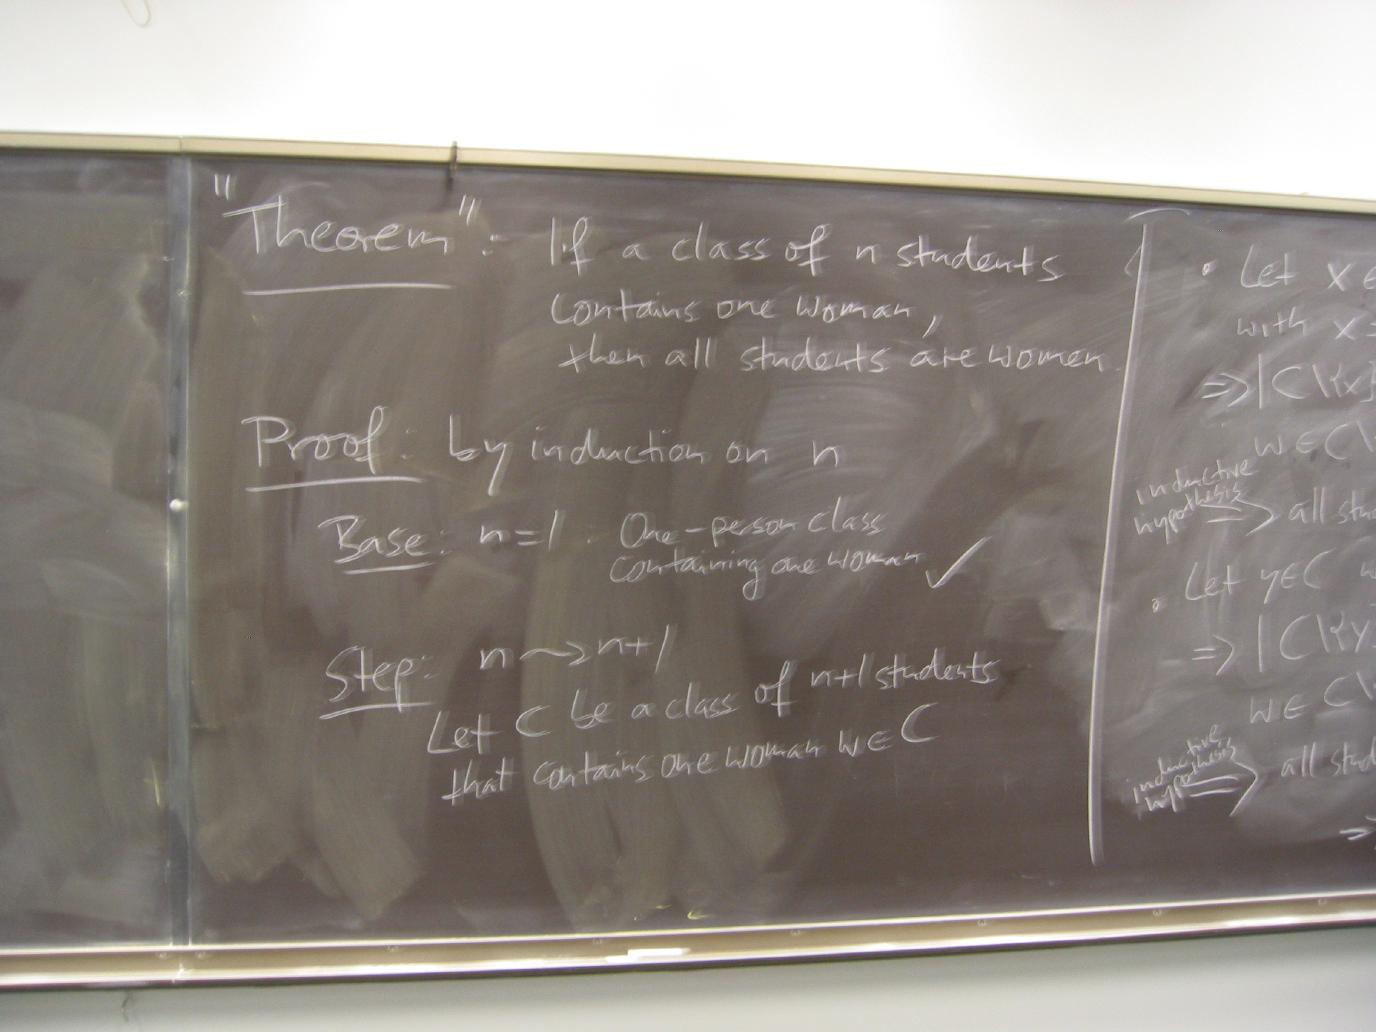 "Theorem": If a class of n students
contains one woman,
then all students are women.
Proof: by induction on n
Base: n=1: One-person class
containing one woman ✓
Step: n ⇝ n+1
Let C be a class of n+1 students
that contains one woman w∈C
• Let x∈
with x
⇒ |C\{x}
w∈C\
inductive
hypothesis
⇒ all stu
• Let y∈C w
⇒ |C\{y}
w∈C\
inductive
hypothesis
⇒ all stud
⇒